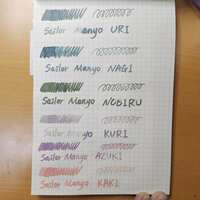 Sailor Manyo URI
Sailor Manyo NAGI
Sailor Manyo NOBIRU
Sailor Manyo KURI
Sailor Manyo AZUKI
Sailor Manyo KAKI